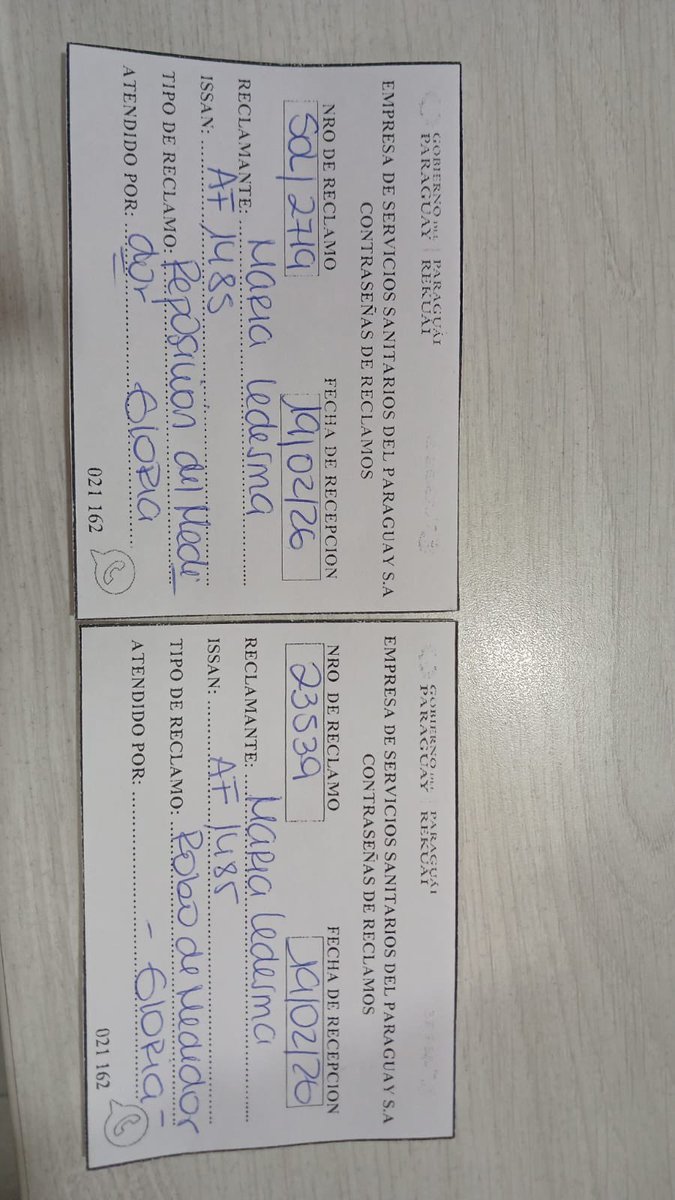 GOBIERNO DEL PARAGUAY | PARAGUÁI REKUÁI
EMPRESA DE SERVICIOS SANITARIOS DEL PARAGUAY S.A
CONTRASEÑAS DE RECLAMOS
NRO DE RECLAMO FECHA DE RECEPCION
Sol/2719 19/02/26
RECLAMANTE: Maria Ledesma
ISSAN: AF 1485
TIPO DE RECLAMO: Reposicion del Medi
dor
ATENDIDO POR: Gloria
021 162
GOBIERNO DEL PARAGUAY | PARAGUÁI REKUÁI
EMPRESA DE SERVICIOS SANITARIOS DEL PARAGUAY S.A
CONTRASEÑAS DE RECLAMOS
NRO DE RECLAMO FECHA DE RECEPCION
23539 19/02/26
RECLAMANTE: Maria Ledesma
ISSAN: AF 1485
TIPO DE RECLAMO: Robo de Medidor
ATENDIDO POR: - Gloria -
021 162